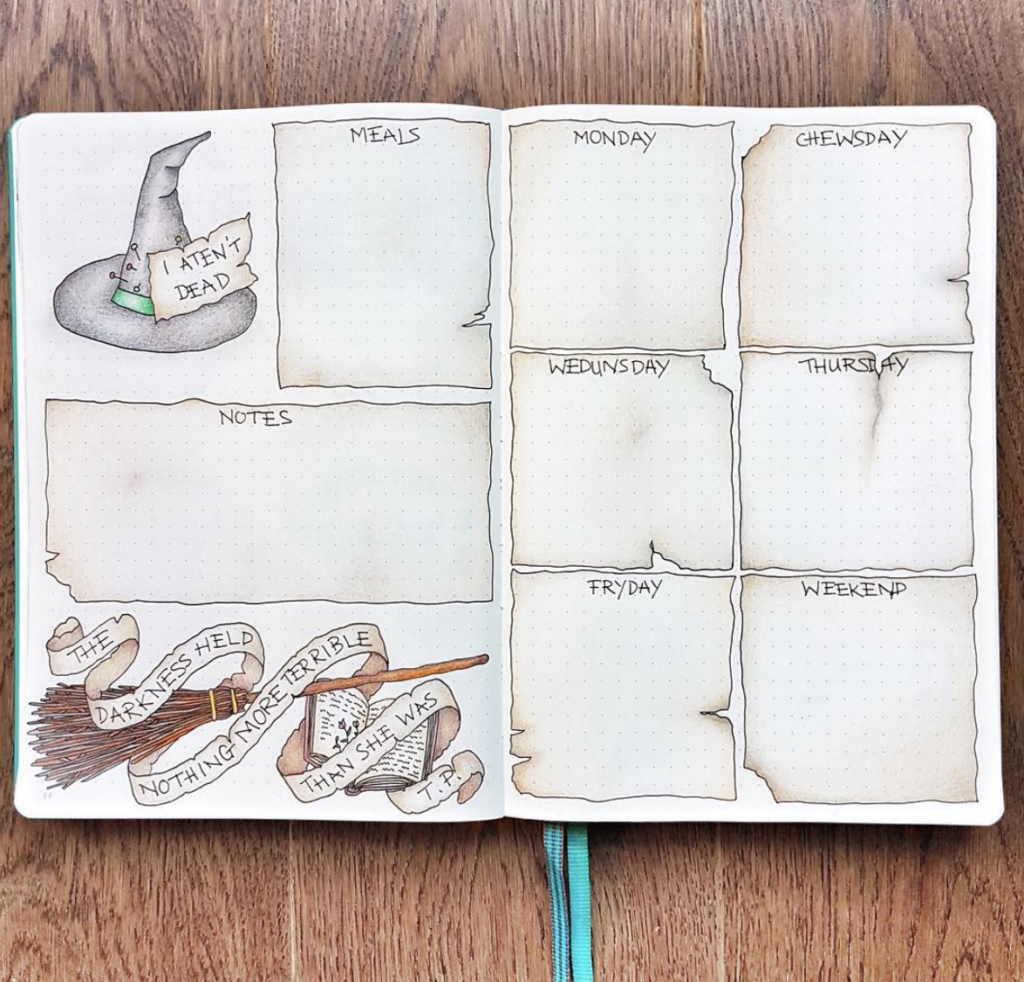 I ATEN'T
DEAD
MEALS
NOTES
THE
DARKNESS HELD
NOTHING MORE TERRIBLE
THAN SHE WAS
T.P.
MONDAY
CHEWSDAY
WEDUNSDAY
THURSDAY
FRYDAY
WEEKEND